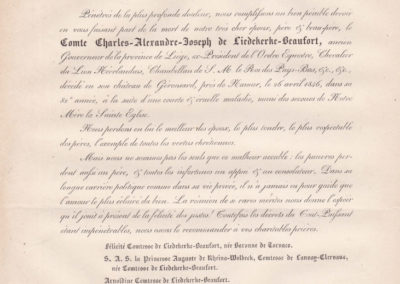 Pénétrés de la plus profonde douleur, nous remplissons un bien pénible devoir
en vous faisant part de la mort de notre très cher époux, père & beau-père, le
Comte Charles-Alexandre-Joseph de Liedekerke-Beaufort, ancien
Gouverneur de la province de Liège, ex-Président de l'Ordre Equestre, Chevalier
du Lion Néerlandais, Chambellan de S. M. le Roi des Pays-Bas, &c., &c.,
décédé en son château de Géronsard, près de Namur, le 26 avril 1846, dans sa
année, à la suite d'une courte & cruelle maladie, muni des secours de Notre
Mère la Sainte Eglise.
Nous perdons en lui le meilleur des époux, le plus tendre, le plus respectable
des pères, l'exemple de toutes les vertus chrétiennes.
Mais nous ne sommes pas les seuls que ce malheur accable: les pauvres per-
dent aussi un père, & toutes les infortunes un appui & un consolateur. Dans sa
longue carrière politique comme dans sa vie privée, il n'a jamais eu pour guide que
l'amour le plus éclairé du bien. La réunion de si rares mérites nous donne l'espoir
qu'il jouit à présent de la félicité des justes! Toutefois les décrets du Tout-Puissant
étant impénétrables, nous osons le recommander à vos charitables prières.
Félicité Comtesse de Liedekerke-Beaufort, née Baronne de
S. A. S. la Princesse Auguste de Rheina-Wolbeck, Comtesse de Lannoy-Clervaux,
née Comtesse de Liedekerke-Beaufort.
Arnoldine Comtesse de Liedekerke-Beaufort.